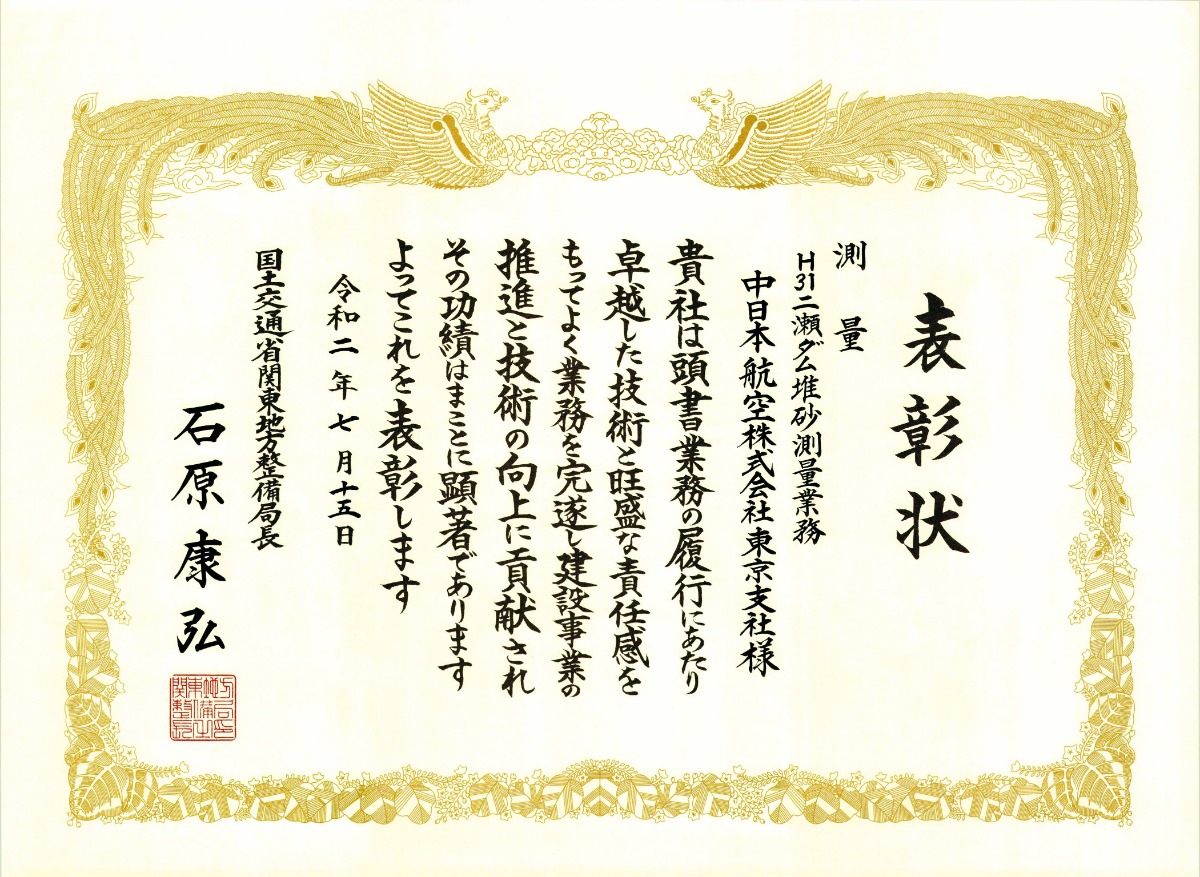 表彰状
測量
H31二瀬ダム堆砂測量業務
中日本航空株式会社 東京支社様
貴社は頭書業務の履行にあたり
卓越した技術と旺盛な責任感を
もってよく業務を完遂し建設事業の
推進と技術の向上に貢献され
その功績はまことに顕著であります
よってこれを表彰します
令和二年七月十五日
国土交通省関東地方整備局長
石原康弘